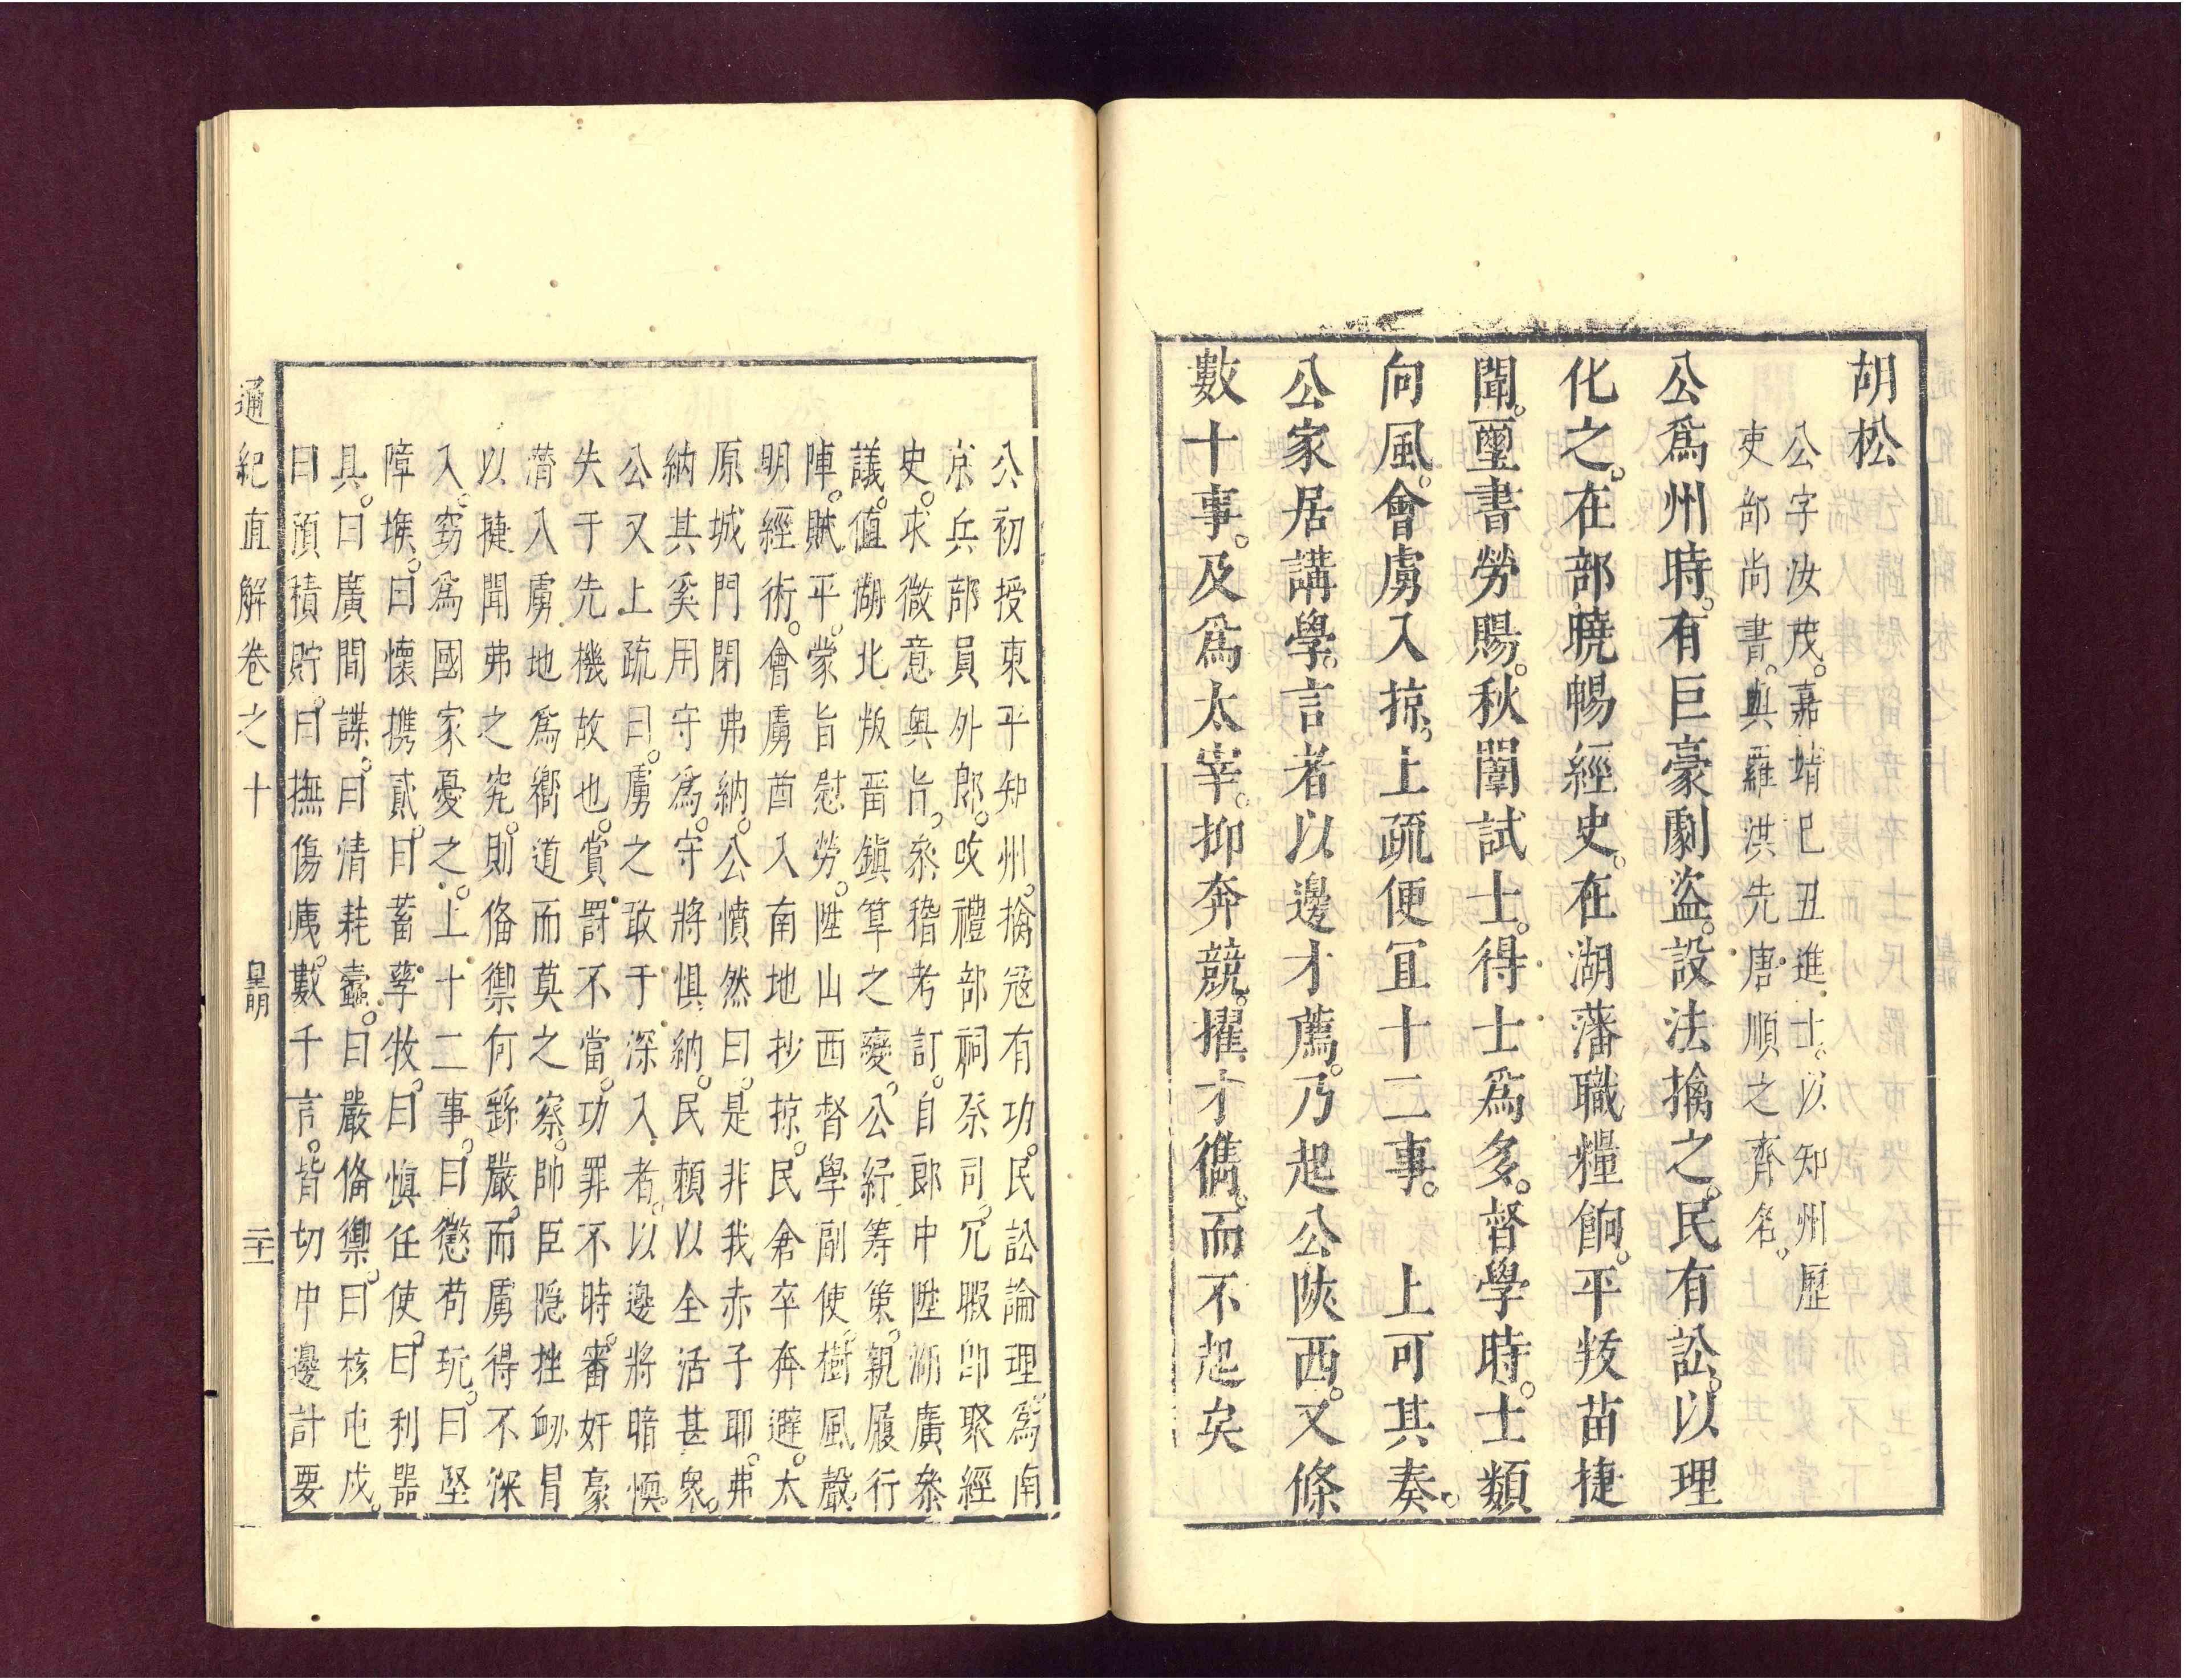 胡松
公字汝茂。嘉靖巳丑進士。以知州歷
吏部尚書。與羅洪先唐順之齊名。
公爲州時。有巨豪劇盗。設法擒之。民有訟。以理
化之。在部曉暢經史。在湖藩職糧餉。平犮苗捷
聞。璽書勞賜。秋闈試士。得士爲多。督學時。士類
向風。會虜入掠。上疏便冝十二事。　上可其奏。
公家居講學。言者以邊才薦。乃起公陝西。又條
數十事。及爲太宰。抑奔競。擢才儁。而不起矣
公初授東平知州。擒冦有功。民訟論理。爲南
京兵部員外郎。改禮部祠祭司。冗暇卽聚經
史。求微意奥旨。叅稽考訂。自郎中陞湖廣叅
議。値湖北叛畨鎮筸之變。公紆筹策。親履行
陣。賊平。蒙旨慰勞。陞山西督學副使。樹風聲。
明經術。會虜酋入南地抄掠。民倉卒奔避。太
原城門閉弗納。公憤然曰。是非我赤子耶。弗
納其奚用守爲。守將懼納。民頼以全活甚衆。
公又上疏曰。虜之敢于深入者。以邊將暗愞。
失于先機故也。賞罸不當。功罪不時。審奸豪
潛入虜地爲嚮道而莫之察。帥臣隐挫衂冐
以捷聞弗之究。則偹禦何繇嚴。而虜得不深
入。窃爲國家憂之。上十二事。曰懲苟玩。曰堅
障堠。曰懷携貳。曰蓄孳牧。曰慎任使。曰利器
具。曰廣間諜。曰清耗蠧。曰嚴偹禦。曰核屯戍。
曰預積貯。曰撫傷痍。數千言。皆切中邊計要
通紀直解卷之十　皇明　二十一